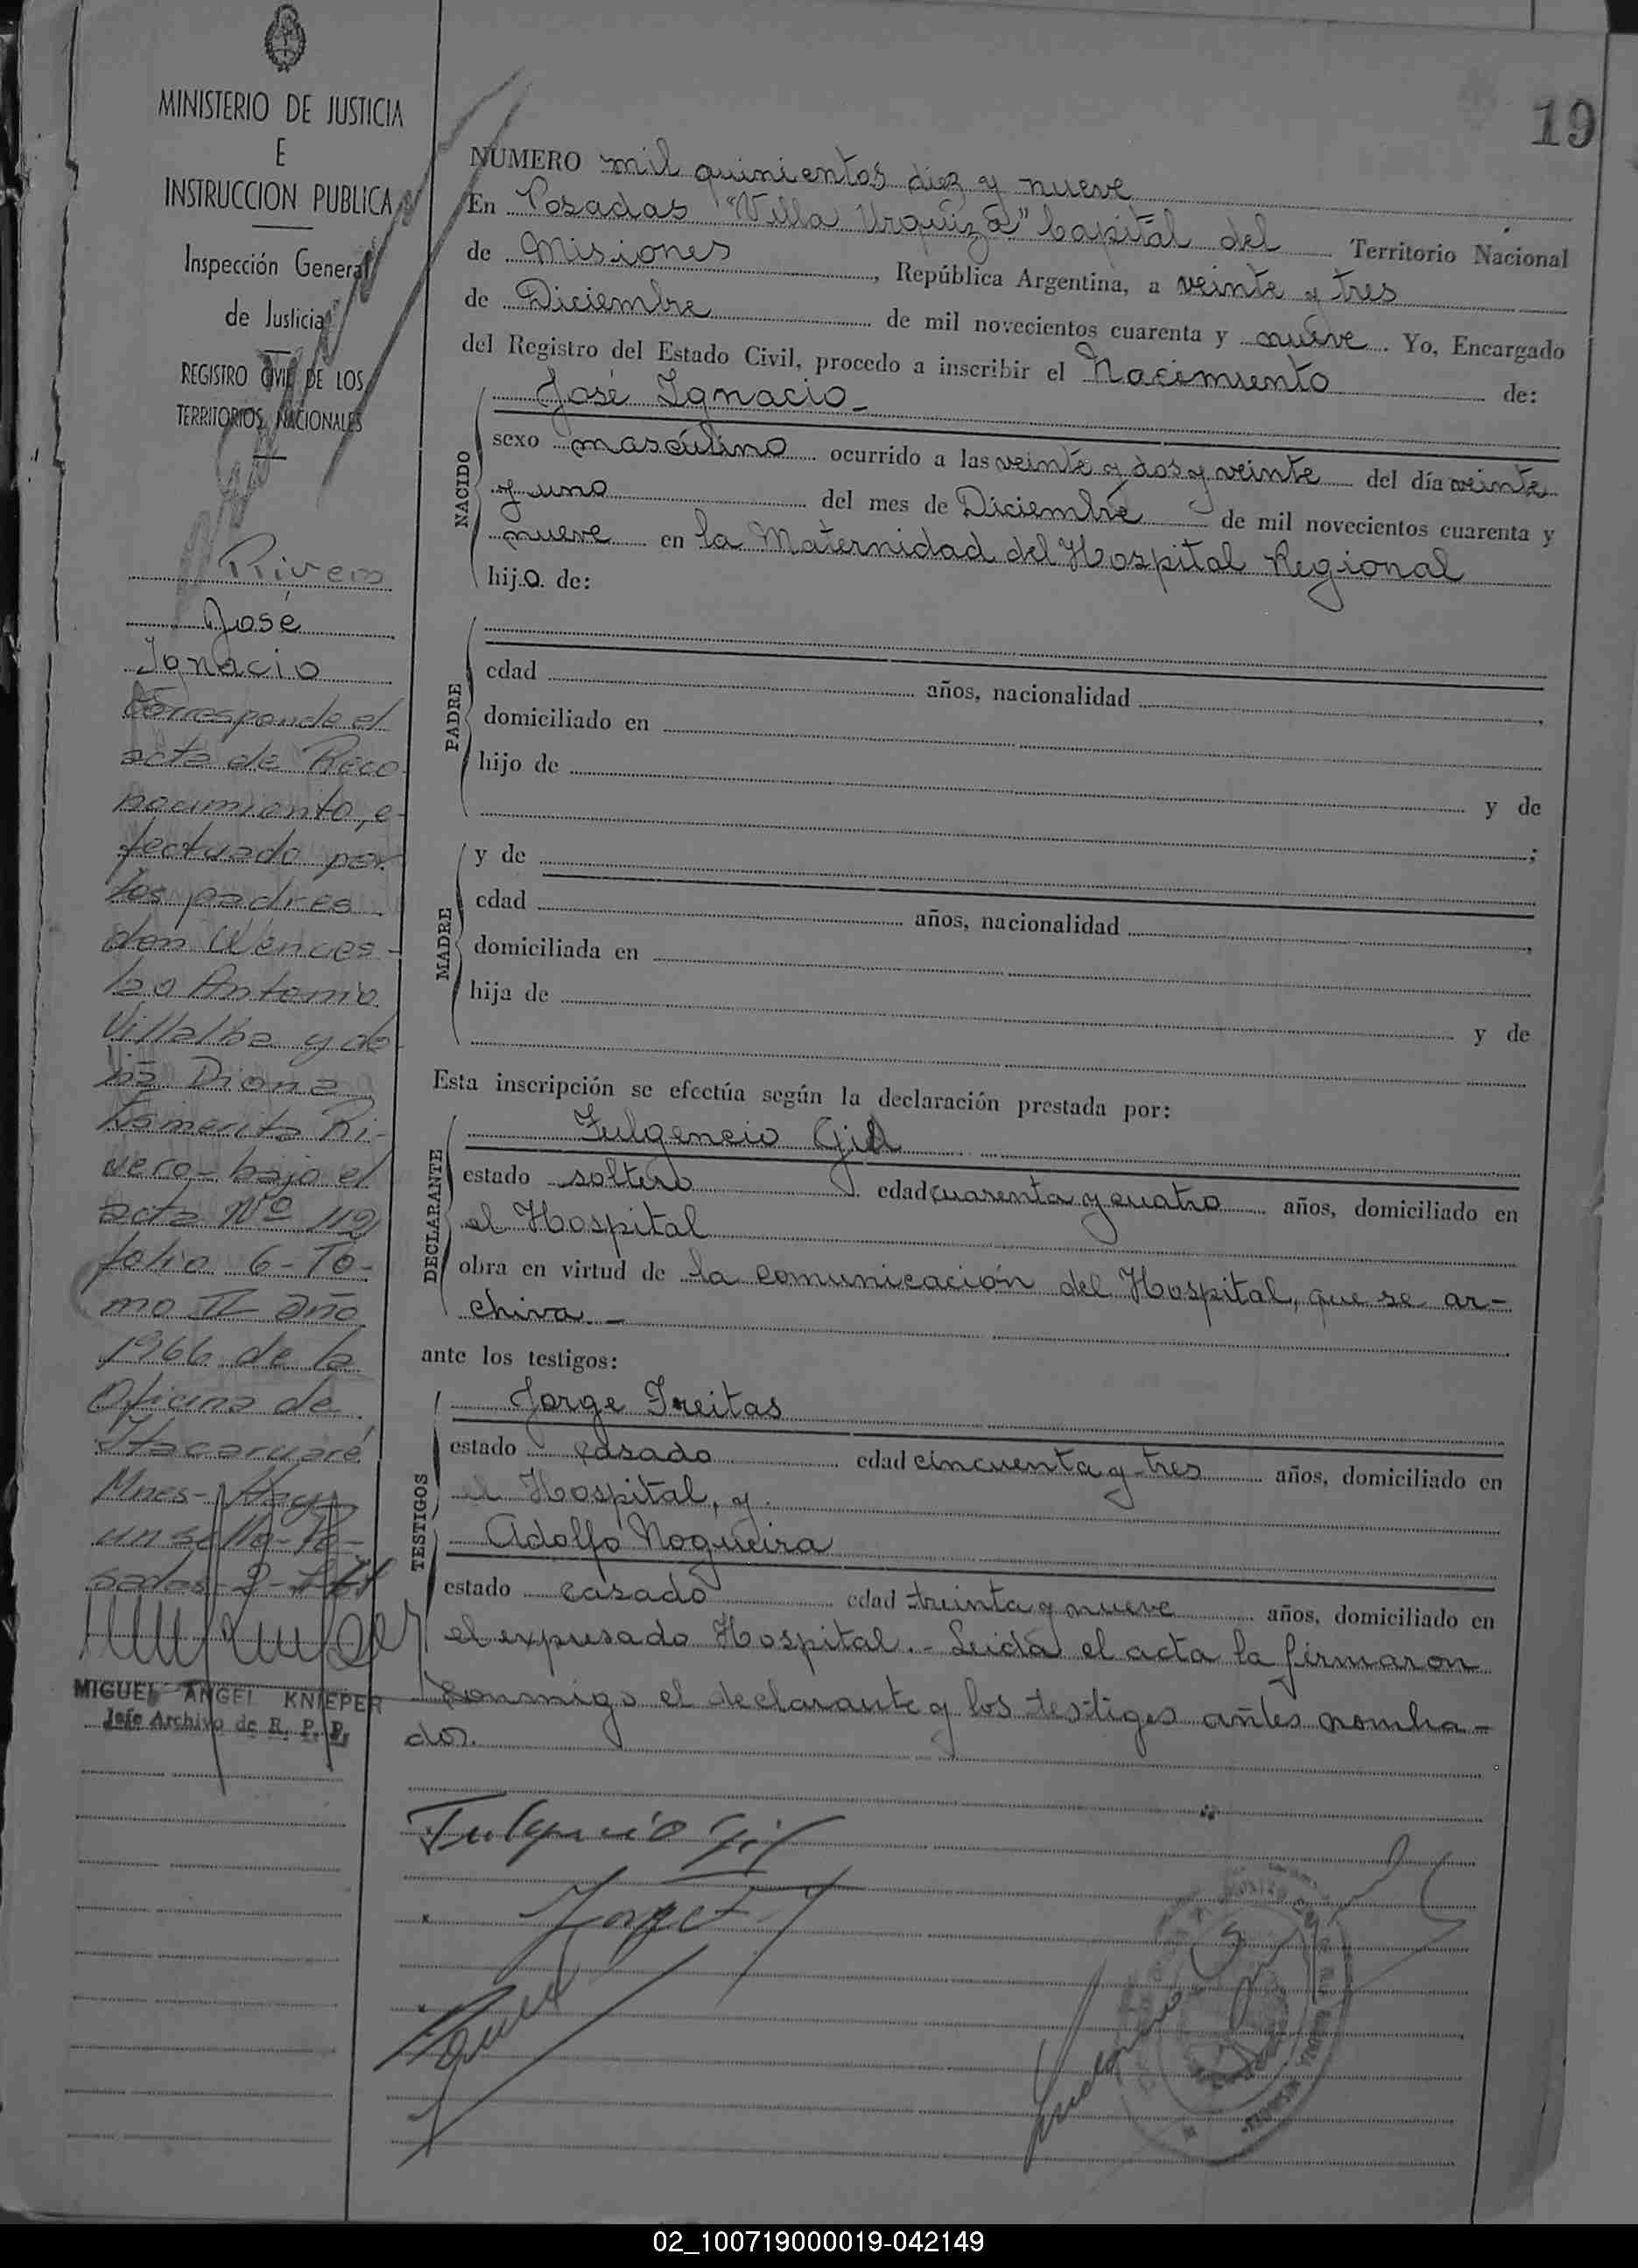 MINISTERIO DE JUSTICIA
E
INSTRUCCION PUBLICA
Inspección General
de Justicia
REGISTRO CIVIL DE LOS
TERRITORIOS NACIONALES
José
Ignacio
Corresponde el
acta de Reco-
nocimiento, e-
fectuado por
los padres
don Wences-
lao Antonio
Villalba y do-
ña Diona
Ri-
vero - bajo el
acta Nº 119
folio 6 - To-
mo II año
1966 de la
Oficina de
Itacaruaré
Mnes - Hay
un sello - Po-
sadas - 2 -
MIGUEL ANGEL KNIEPER
Jefe Archivo de R. P. P.
19
NUMERO mil quinientos diez y nueve
En Posadas "Villa Urquiza" Capital del Territorio Nacional
de Misiones, República Argentina, a veinte y tres
de Diciembre de mil novecientos cuarenta y nueve. Yo, Encargado
del Registro del Estado Civil, procedo a inscribir el Nacimiento de:
NACIDO
José Ignacio -
sexo masculino ocurrido a las veinte y dos y veinte del día veinte
y uno del mes de Diciembre de mil novecientos cuarenta y
nueve en la Maternidad del Hospital Regional
hijo de:
PADRE
edad años, nacionalidad ,
domiciliado en
hijo de y de
;
MADRE
y de
edad años, nacionalidad ,
domiciliada en
hija de y de
Esta inscripción se efectúa según la declaración prestada por:
DECLARANTE
Fulgencio Gil
estado soltero edad cuarenta y cuatro años, domiciliado en
el Hospital
obra en virtud de la comunicación del Hospital, que se ar-
chiva. -
ante los testigos:
TESTIGOS
Jorge Freitas
estado casado edad cincuenta y tres años, domiciliado en
el Hospital, y
Adolfo Nogueira
estado casado edad treinta y nueve años, domiciliado en
el expresado Hospital. - Leida el acta la firmaron
conmigo el declarante y los testigos antes nombra-
dos.
Fulgencio Gil
Jorge F
02_100719000019-042149